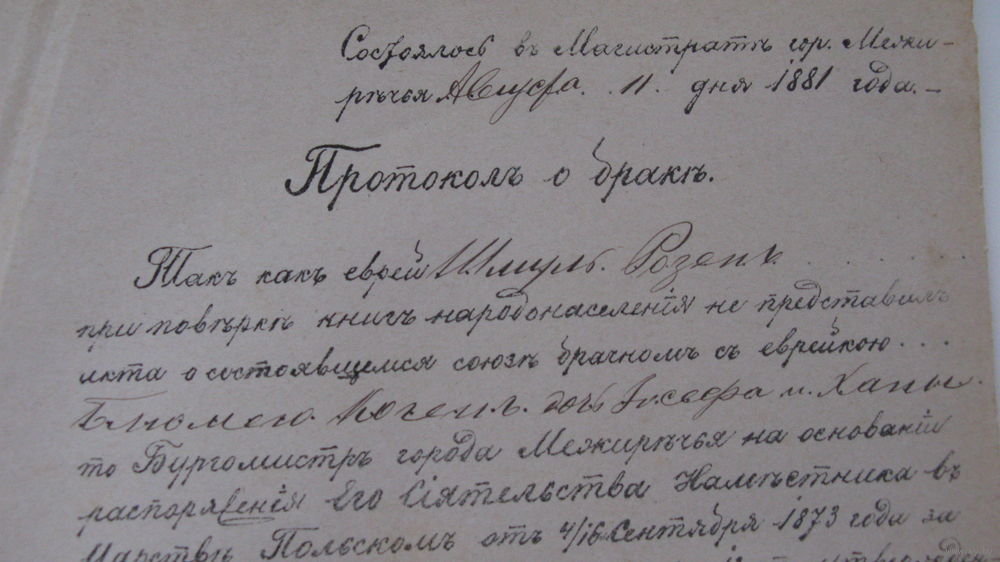 Состоялось въ Магистратѣ гор. Межи-
рѣчья Августа. 11. дня 1881 года.-
Протоколъ о бракѣ.
Такъ какъ еврей Шмуль. Розенъ. . . . . . .
при повѣркѣ книгъ народонаселенія не представилъ
акта о состоявшемся союзѣ брачномъ съ еврейкою . . .
Блюмею. дочь Іосефа и. Ханы.
то Бургомистръ города Межирѣчья на основаніи
распоряженія Его Сіятельства Намѣстника въ
Царствѣ Польскомъ отъ 4/16 Сентября 1873 года за